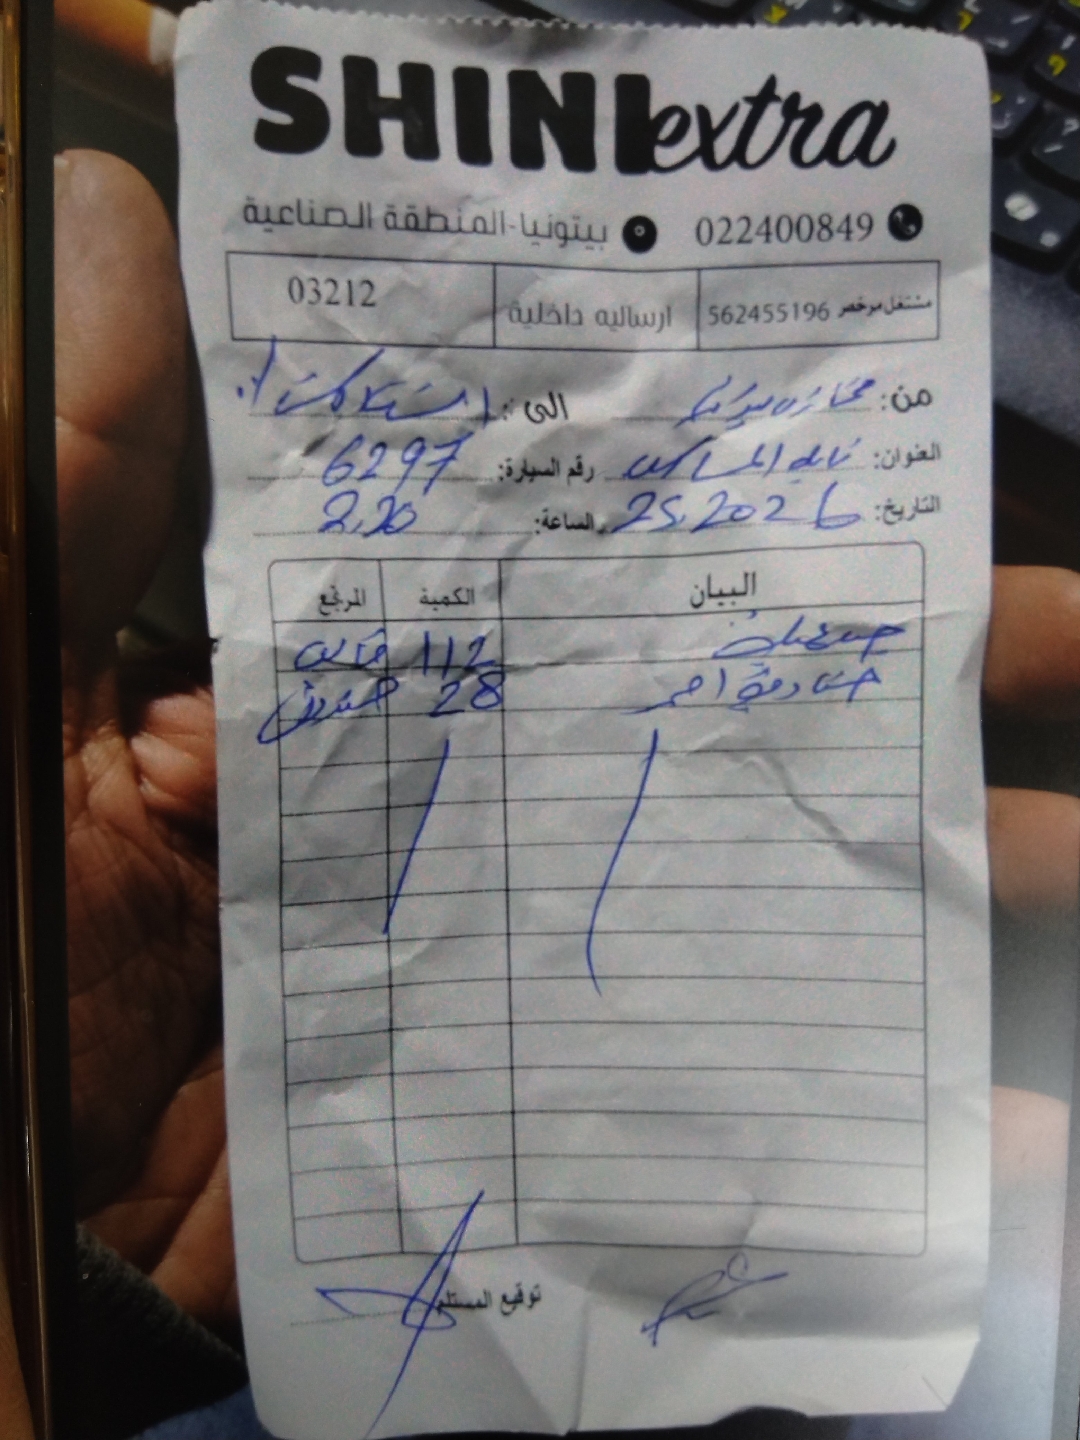 SHINI extra
022400849 بيتونيا-المنطقة الصناعية
مشتغل مرخص 562455196 ارساليه داخلية 03212
من: الى:
العنوان: رقم السيارة: 6297
التاريخ: 25.2026 الساعة: 2.20
البيان الكمية المرتجع
112
صنادمة احمر 28 صندوق
توقيع المستلم